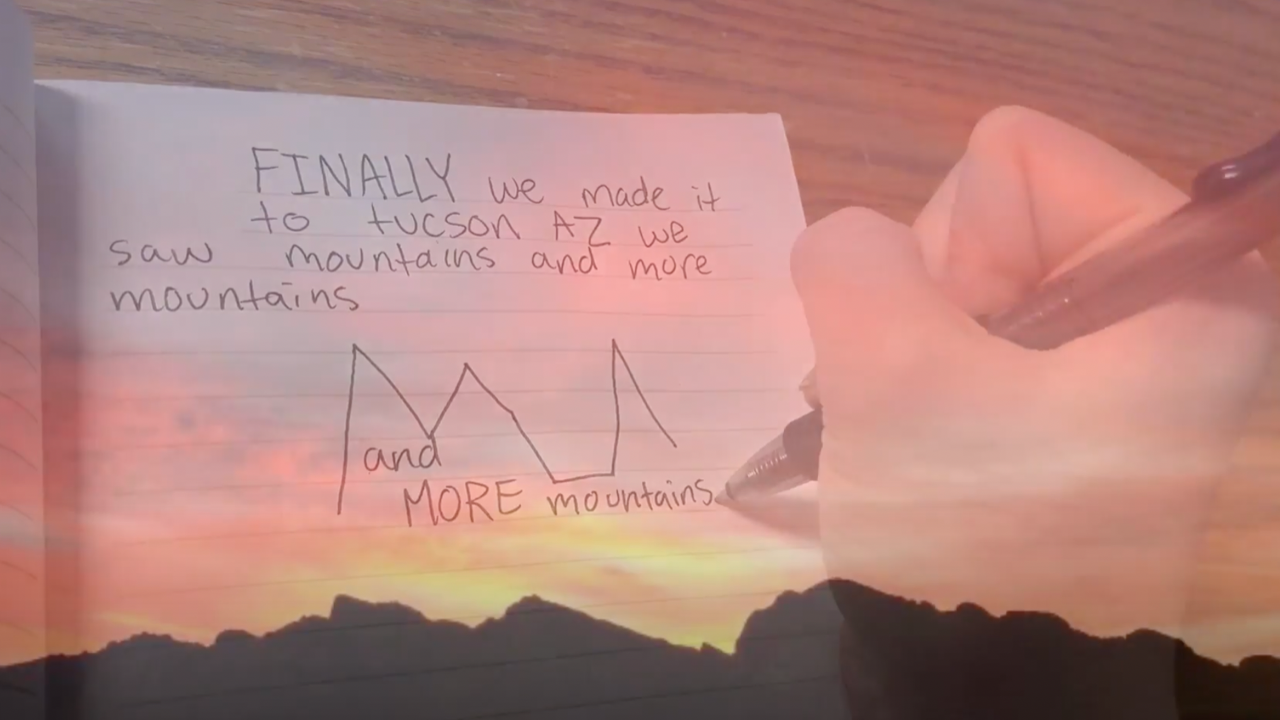 FINALLY we made it
to tucson AZ we
saw mountains and more
mountains
and
MORE mountains